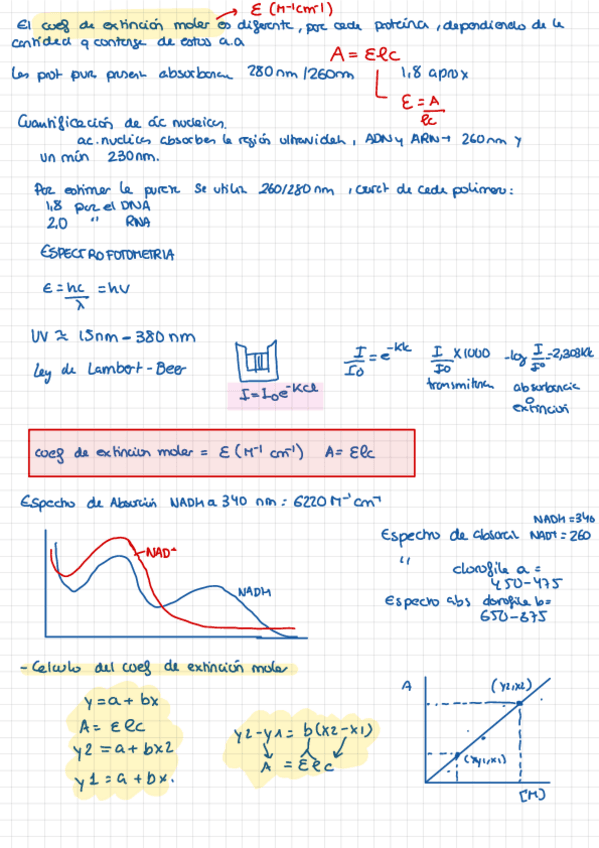 ε (M⁻¹cm⁻¹)
El coef de extinción molar es diferente, por cada proteína, dependiendo de la
cantidad q contenga de estos a.a
A = εlc
Las prot pura present absorbancia 280nm/260nm 1,8 aprox
ε = A/lc
Cuantificación de ác nucleicos.
ac. nucleicos absorben la región ultravioleta, ADN y ARN → 260nm y
un mín 230nm.
Para estimar la pureza se utiliza 260/280 nm, caract de cada polímero:
1,8 para el DNA
2,0 " RNA
ESPECTROFOTOMETRIA
E = hc/λ = hν
UV ≈ 15nm - 380 nm
Ley de Lambert-Beer
I = I₀e⁻ᴷᶜˡ
I/I₀ = e⁻ᴷˡ I/I₀ x 1000 -log I/I₀ =
transmitancia absorbancia
o
extinción
coef de extinción molar = ε (M⁻¹ cm⁻¹) A = εlc
Espectro de Absorción NADH a 340 nm = 6220 M⁻¹ cm⁻¹
NADH = 340
Espectro de absorci NAD+ = 260
" clorofila a =
450-475
Espectro abs clorofila b =
650-675
NAD+
NADH
- Calculo del coef de extinción molar
y = a + bx
A = εlc
y2 = a + bx2
y1 = a + bx.
y2-y1 = b(x2-x1)
A = εlc
A
(y2,x2)
(xy1,x1)
[M]